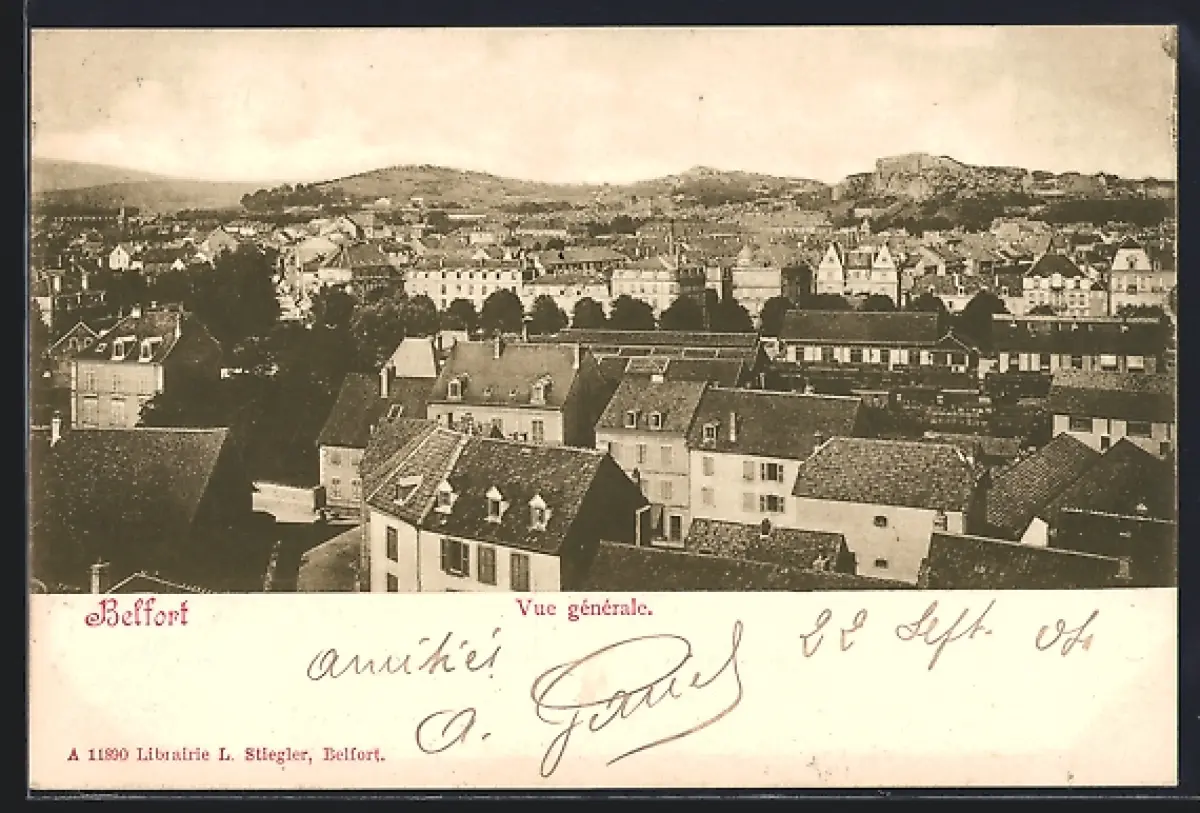 Belfort
Vue générale.
22 Sept. 04
Amitiés
A.
A 11890 Librairie L. Stiegler, Belfort.